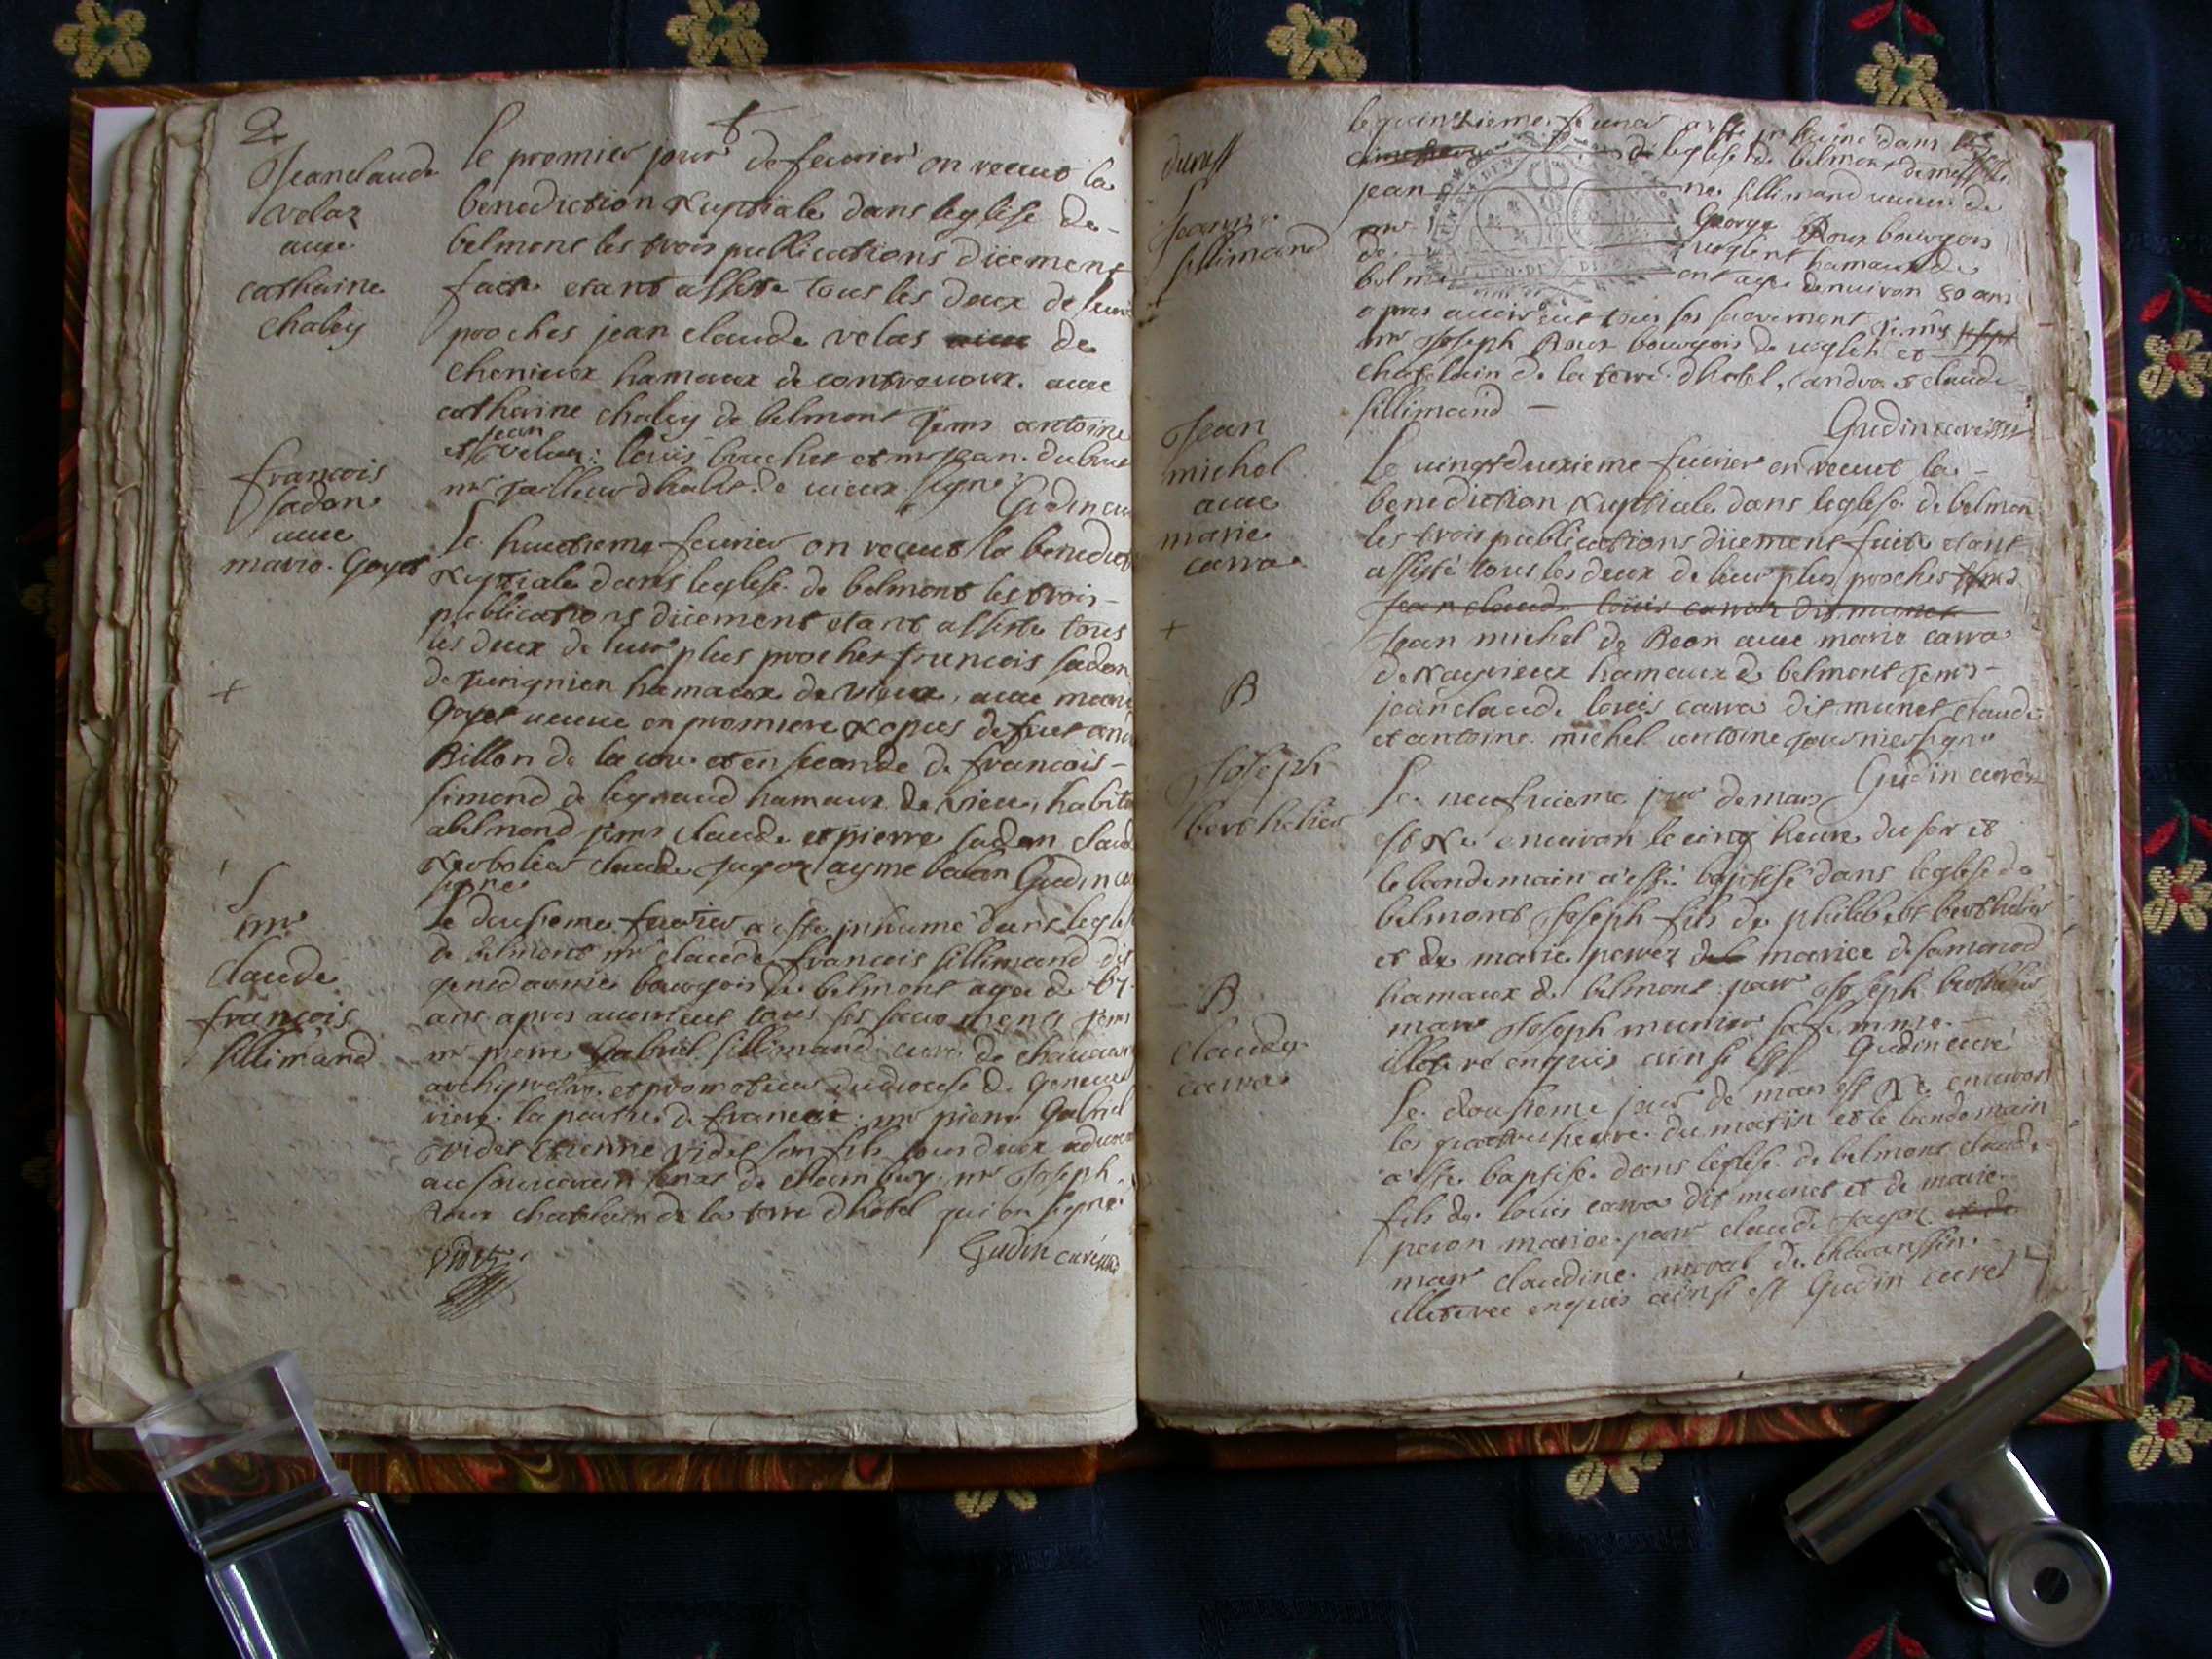 2
Jean claude
velaz
avec
catherine
chaley
le premier jour de feurier on receut la
benediction Nuptiale dans leglise de
belmont les trois publications düement
faite etant assiste tous les deux de leur
proches jean claude velas de
chenieux hamaux de contreuoux. avec
catherine chaley de belmont antoine
et jean velas: loüis bruchet et mr jean. dubreu
mr tailleur dhabit. de uieux signe
Gudin cu
francois
sadon
avec
marie. Goyet
le huictieme feurier on receut la benedict
Nuptiale dans leglise de belmont les trois
publications düement etant assiste tous
les deux de leur plus proches francois sadon
de hamaux de vieux, avec marie
Goyet ueuue en premiere Nopces defeut
Billon de la et en seconde de francois
simond de hamaux de vieu, habite
abelmond claude et pierre sadon claude
claude ayme balan Gudin cu
signe
mr
claude
francois
sillimand
le dousieme feurier a este inhumé dans leglise
de belmont mr claude francois sillimand dit
bourgois de belmont agee de 67
ans apres auoir eut tous ses sacrements
mr pierre Gabriel sillimand curé de
archyprestre et promoteur du diocese de Geneue
riere la partie de france. mr pierre Gabriel
videt etienne videt son fils tous deux
au souuerain senat de chambery. mr Joseph
Roux chatelain de la terre dhotel qui on signé
Videt
Gudin curé
le quinsieme feurier a este in humé dans
de leglise de belmont
jean ne. sillimand ueuue de
mr George Roux bourgois
de hamaux de
belm ont agee denuiron 80 ans
apres auoir eut tous ses sacrement
mr Joseph Roux bourgois de et
chatelain de la terre dhotel, andre et claude
sillimand
Gudin curé
Jeanne
sillimand
Jean
michel
avec
marie
carra
Le uingtduexieme feurier on receut la
benediction Nuptiale dans leglise de belmon
les trois publications düement faite etant
assisté tous les deux de leur plus proches
jean claude loüis carra dit munet
Jean michel de Beon avec marie carra
de hamaux de belmont
jean claude loüis carra dit munet claude
et antoine michel antoine fournier signe
Gudin curé
B
Joseph
berthelier
Le neufuieme jour de mars
est Né enuiron le cinq heure du soir et
le landemain a esté baptisé dans leglise de
belmont Joseph fils de philibert berthelier
et de marie perrez mariee de samonod
hamaux de belmont parr Joseph berthelier
marr Joseph munier sa femme.
illeteré enquis ainsi est Gudin curé
B
claude
carra
Le dousieme jour de mars est Né enuiron
les quattre heure du matin et le landemain
a esté baptisé dans leglise de belmont claude
fils de loüis carra dit munet et de marie
peron mariee. parr claude
marr claudine moral de chauanssin.
illeteree enquis ainsi est Gudin curé